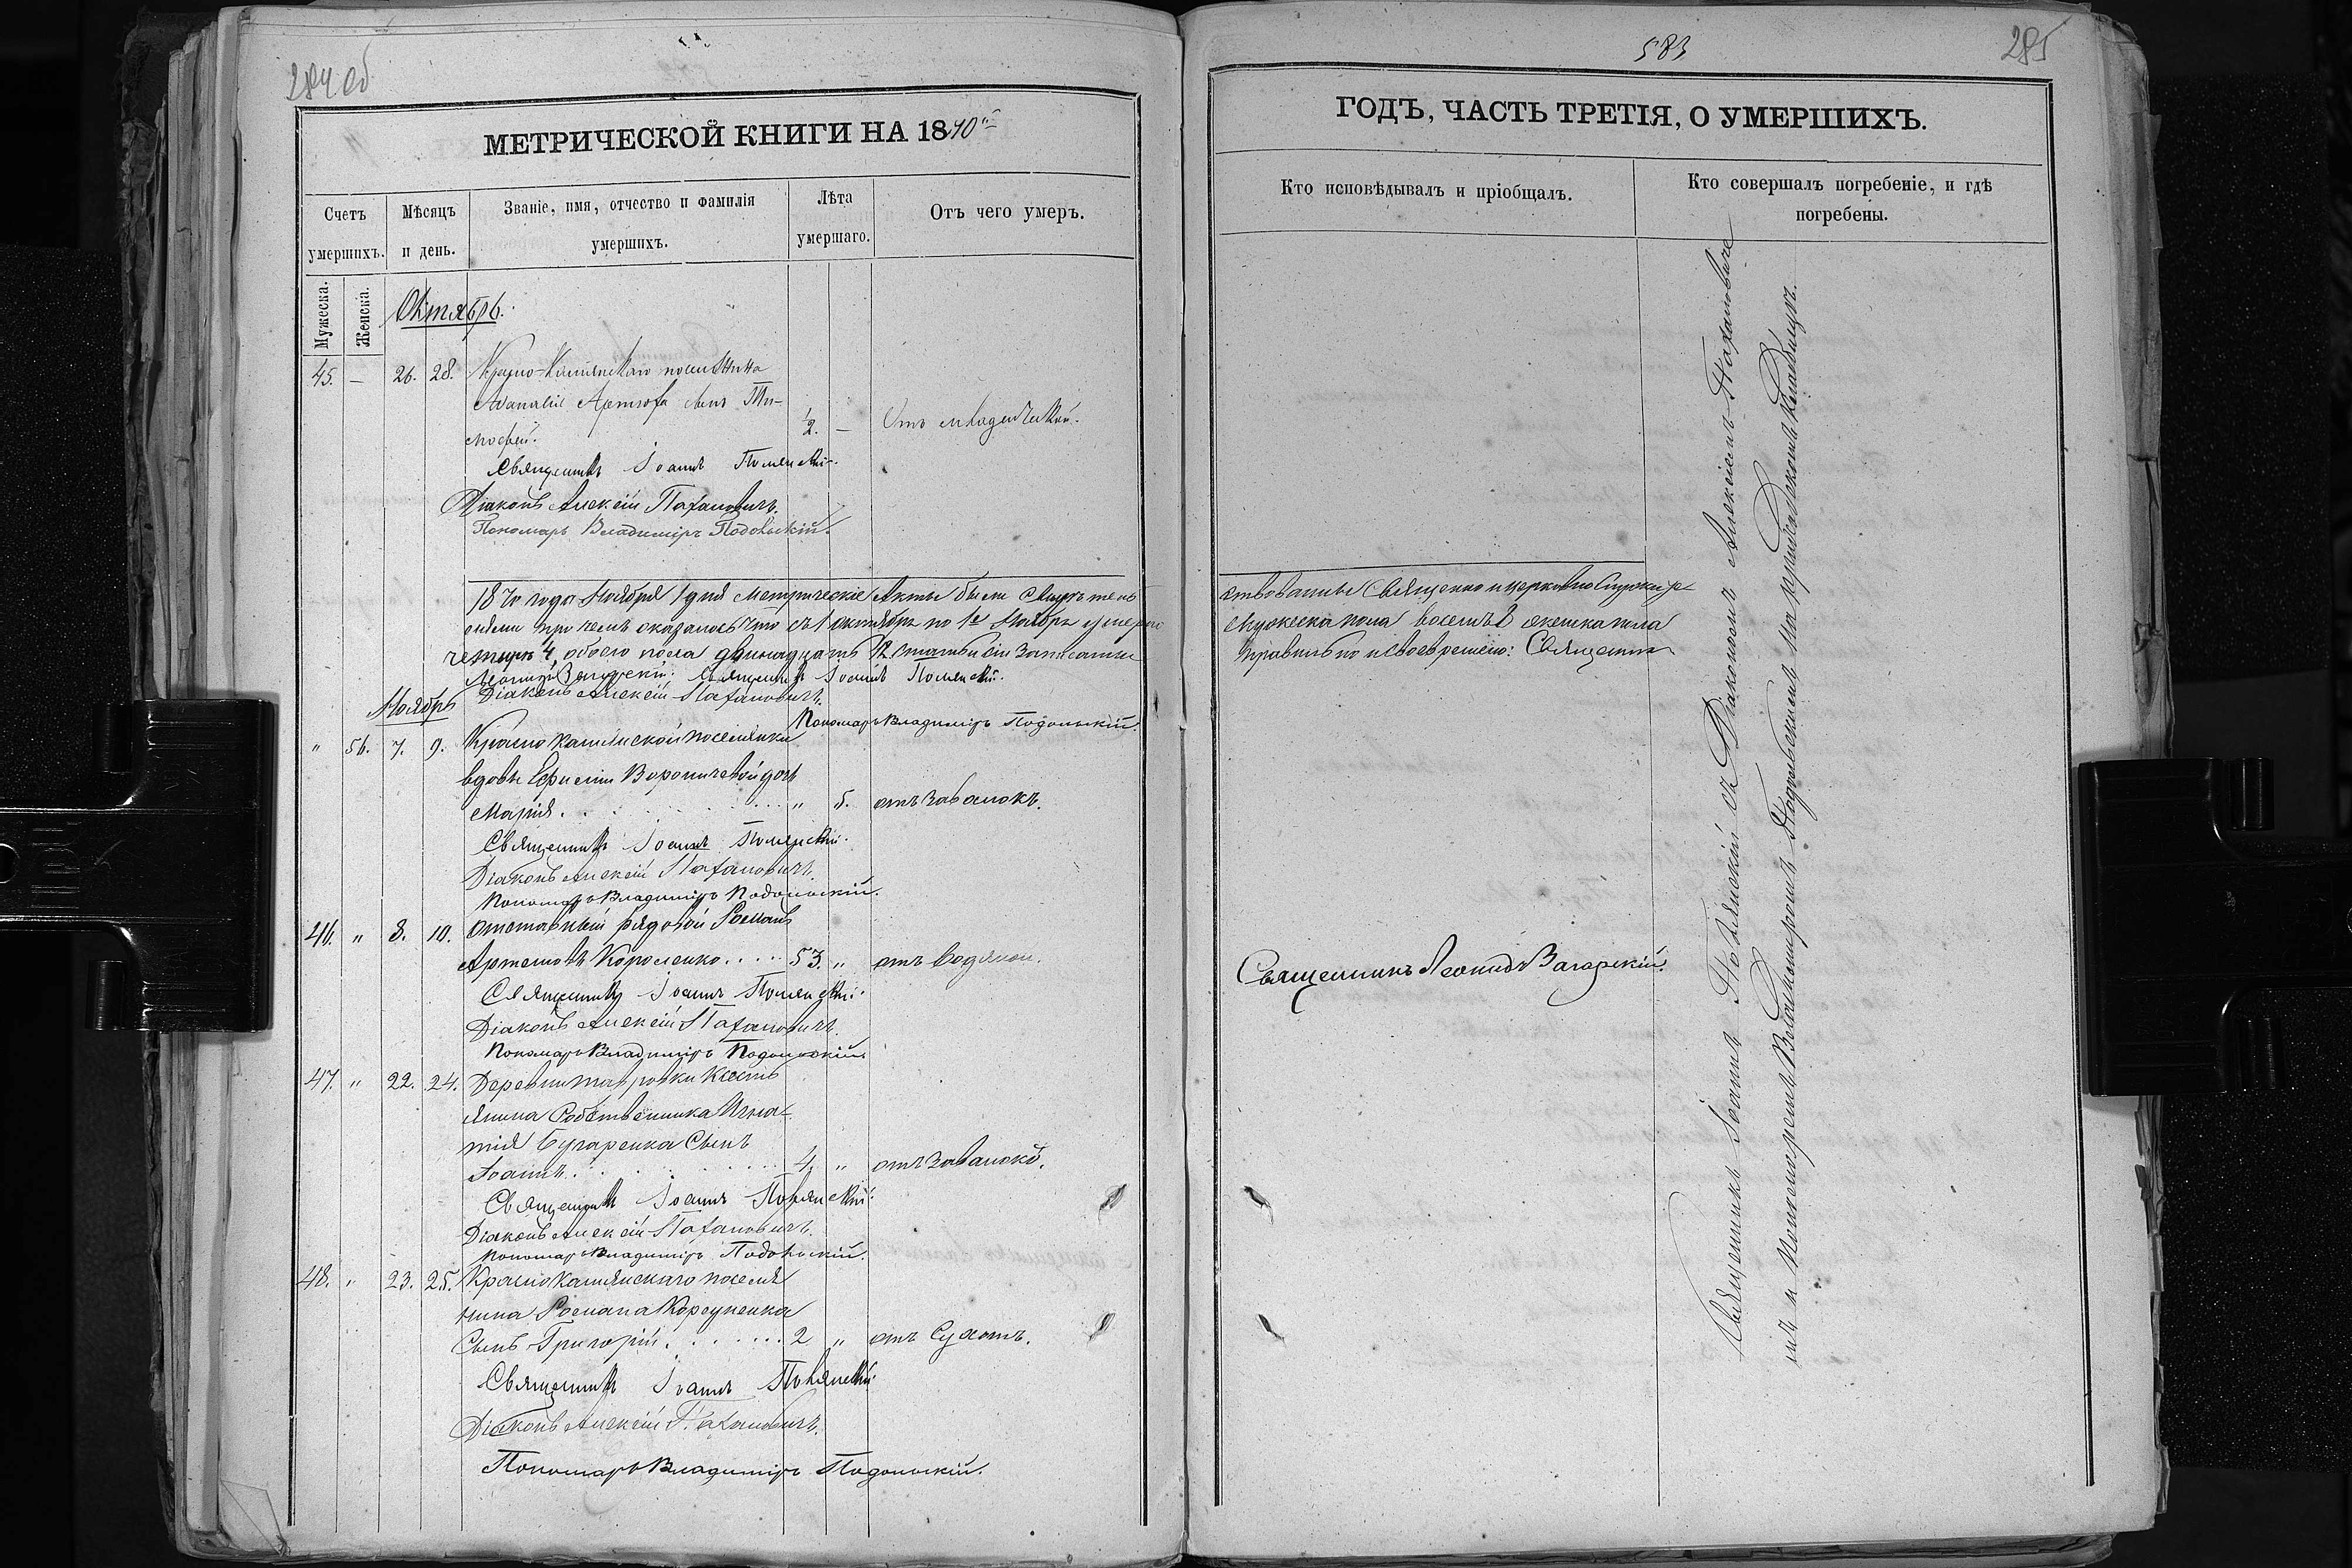 284 об
МЕТРИЧЕСКОЙ КНИГИ НА 1870й
Счетъ умершихъ.
Мѣсяцъ и день.
Званіе, имя, отчество и фамилія умершихъ.
Лѣта умершаго.
Отъ чего умеръ.
Мужеска.
Женска.
Октябрь.
45. — 26. 28. Красно-Камянскаго поселянина
Артюфа сынъ Ти-
мофей. 1/2. — Отъ младенческой.
Священникъ Іоаннъ Полянскій.
Діаконъ Алексій Пахановичъ.
Пономарь Владиміръ Подольскій.
1870 года Ноября 1 дня Метрическіе Акты были Свидѣтель
чемъ оказалось что съ 1 октября по 1е Ноября умерли
четыре 4, обоего пола двенадцать 12. Статьи сіи записаны
Священникъ Іоаннъ Полянскій.
Діаконъ Алексій Пахановичъ.
Ноябрь
Пономарь Владиміръ Подольскій.
" 56. 7. 9. Красно Камянской поселянки
вдовы Вороничевой дочь
Марія. " 5. отъ завалокъ.
Священникъ Іоаннъ Полянскій.
Діаконъ Алексій Пахановичъ.
Пономарь Владиміръ Подольскій.
46. " 8. 10. Отставный рядовой Романъ
Артемовъ Короленко. . . . 53. " отъ водяной.
Священникъ Іоаннъ Полянскій.
Діаконъ Алексій Пахановичъ.
Пономарь Владиміръ Подольскій
47. " 22. 24. Деревни Тавровки Крестъ
янина Собственника Игна-
тія Бугаренка Сынъ
Іоаннъ. 4. " отъ завалокъ.
Священникъ Іоаннъ Полянскій.
Діаконъ Алексій Пахановичъ.
Пономарь Владиміръ Подольскій.
48. " 23. 25. Краснокамянскаго поселя
нина Романа Корсуненка
Сынъ Григорій. 2 " отъ Сухотъ.
Священникъ Іоаннъ Полянскій
Діаконъ Алексій Пахановичъ.
Пономарь Владиміръ Подольскій.
583
285
ГОДЪ, ЧАСТЬ ТРЕТІЯ, О УМЕРШИХЪ.
Кто исповѣдывалъ и пріобщалъ.
Кто совершалъ погребеніе, и гдѣ погребены.
ствованы Священно и церковно Служит.
мужеска пола восемь 8 женска пола
правильно и своевременно: Священник
Священникъ Леонидъ Загорскій.
Священникъ Іоаннъ Полянскій съ Діакономъ Алексіемъ Пахановиче
мъ и Пономаремъ Владиміромъ Подольскимъ на приходскомъ Кладбищѣ.